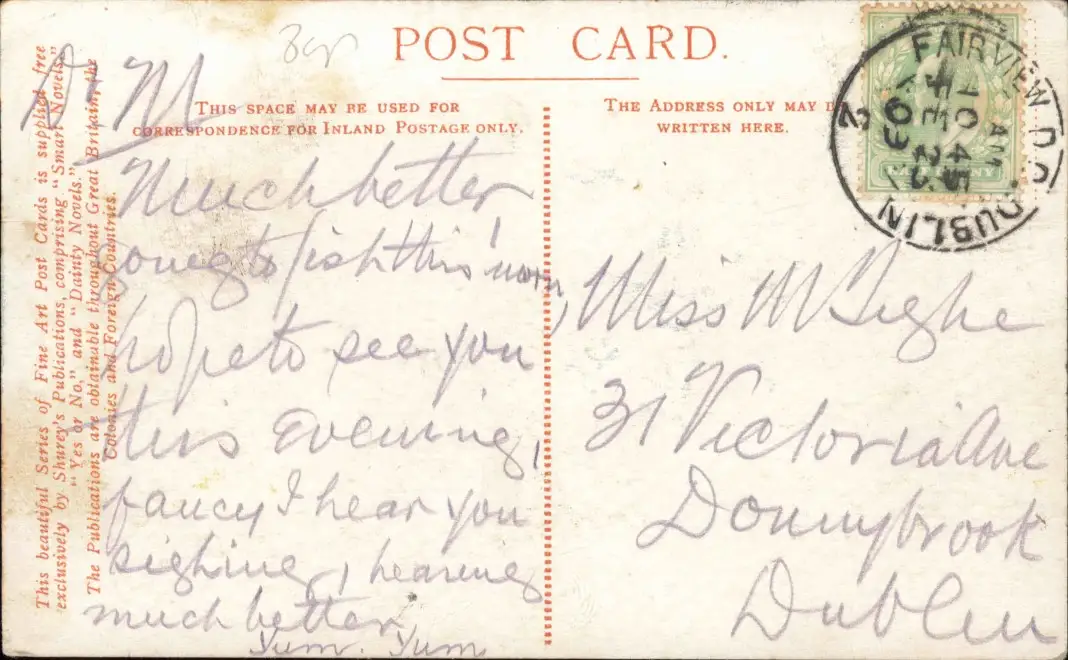 POST CARD.
THIS SPACE MAY BE USED FOR
CORRESPONDENCE FOR INLAND POSTAGE ONLY.
THE ADDRESS ONLY MAY B
WRITTEN HERE.
This beautiful Series of Fine Art Post Cards is supplied free
exclusively by Shurey's Publications, comprising "Smart Novels,"
"Yes or No," and "Dainty Novels."
The Publications are obtainable throughout Great Britain, the
Colonies and Foreign Countries.
FAIRVIEW D.O.
DUBLIN
10 45 AM
FE 2
09
2
Dr M
Much better
going to fish this morn,
hope to see you
this evening,
fancy I hear you
sighing, hearing
much better,
Yum. Yum
Miss McBeghe
31 Victoria Ave
Donnybrook
Dublin